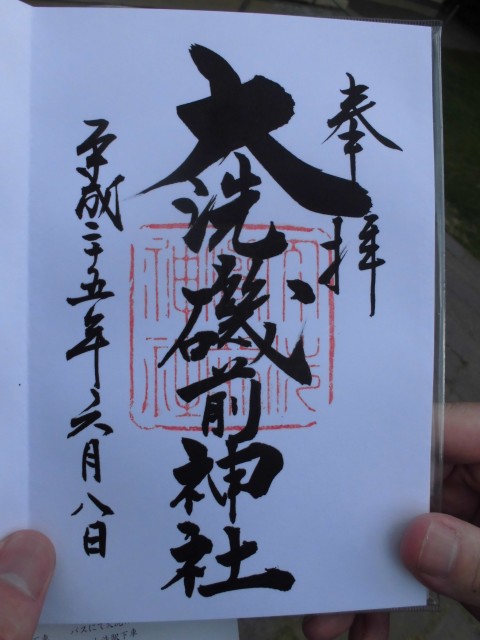 奉拝
大洗磯前神社
平成二十五年六月八日